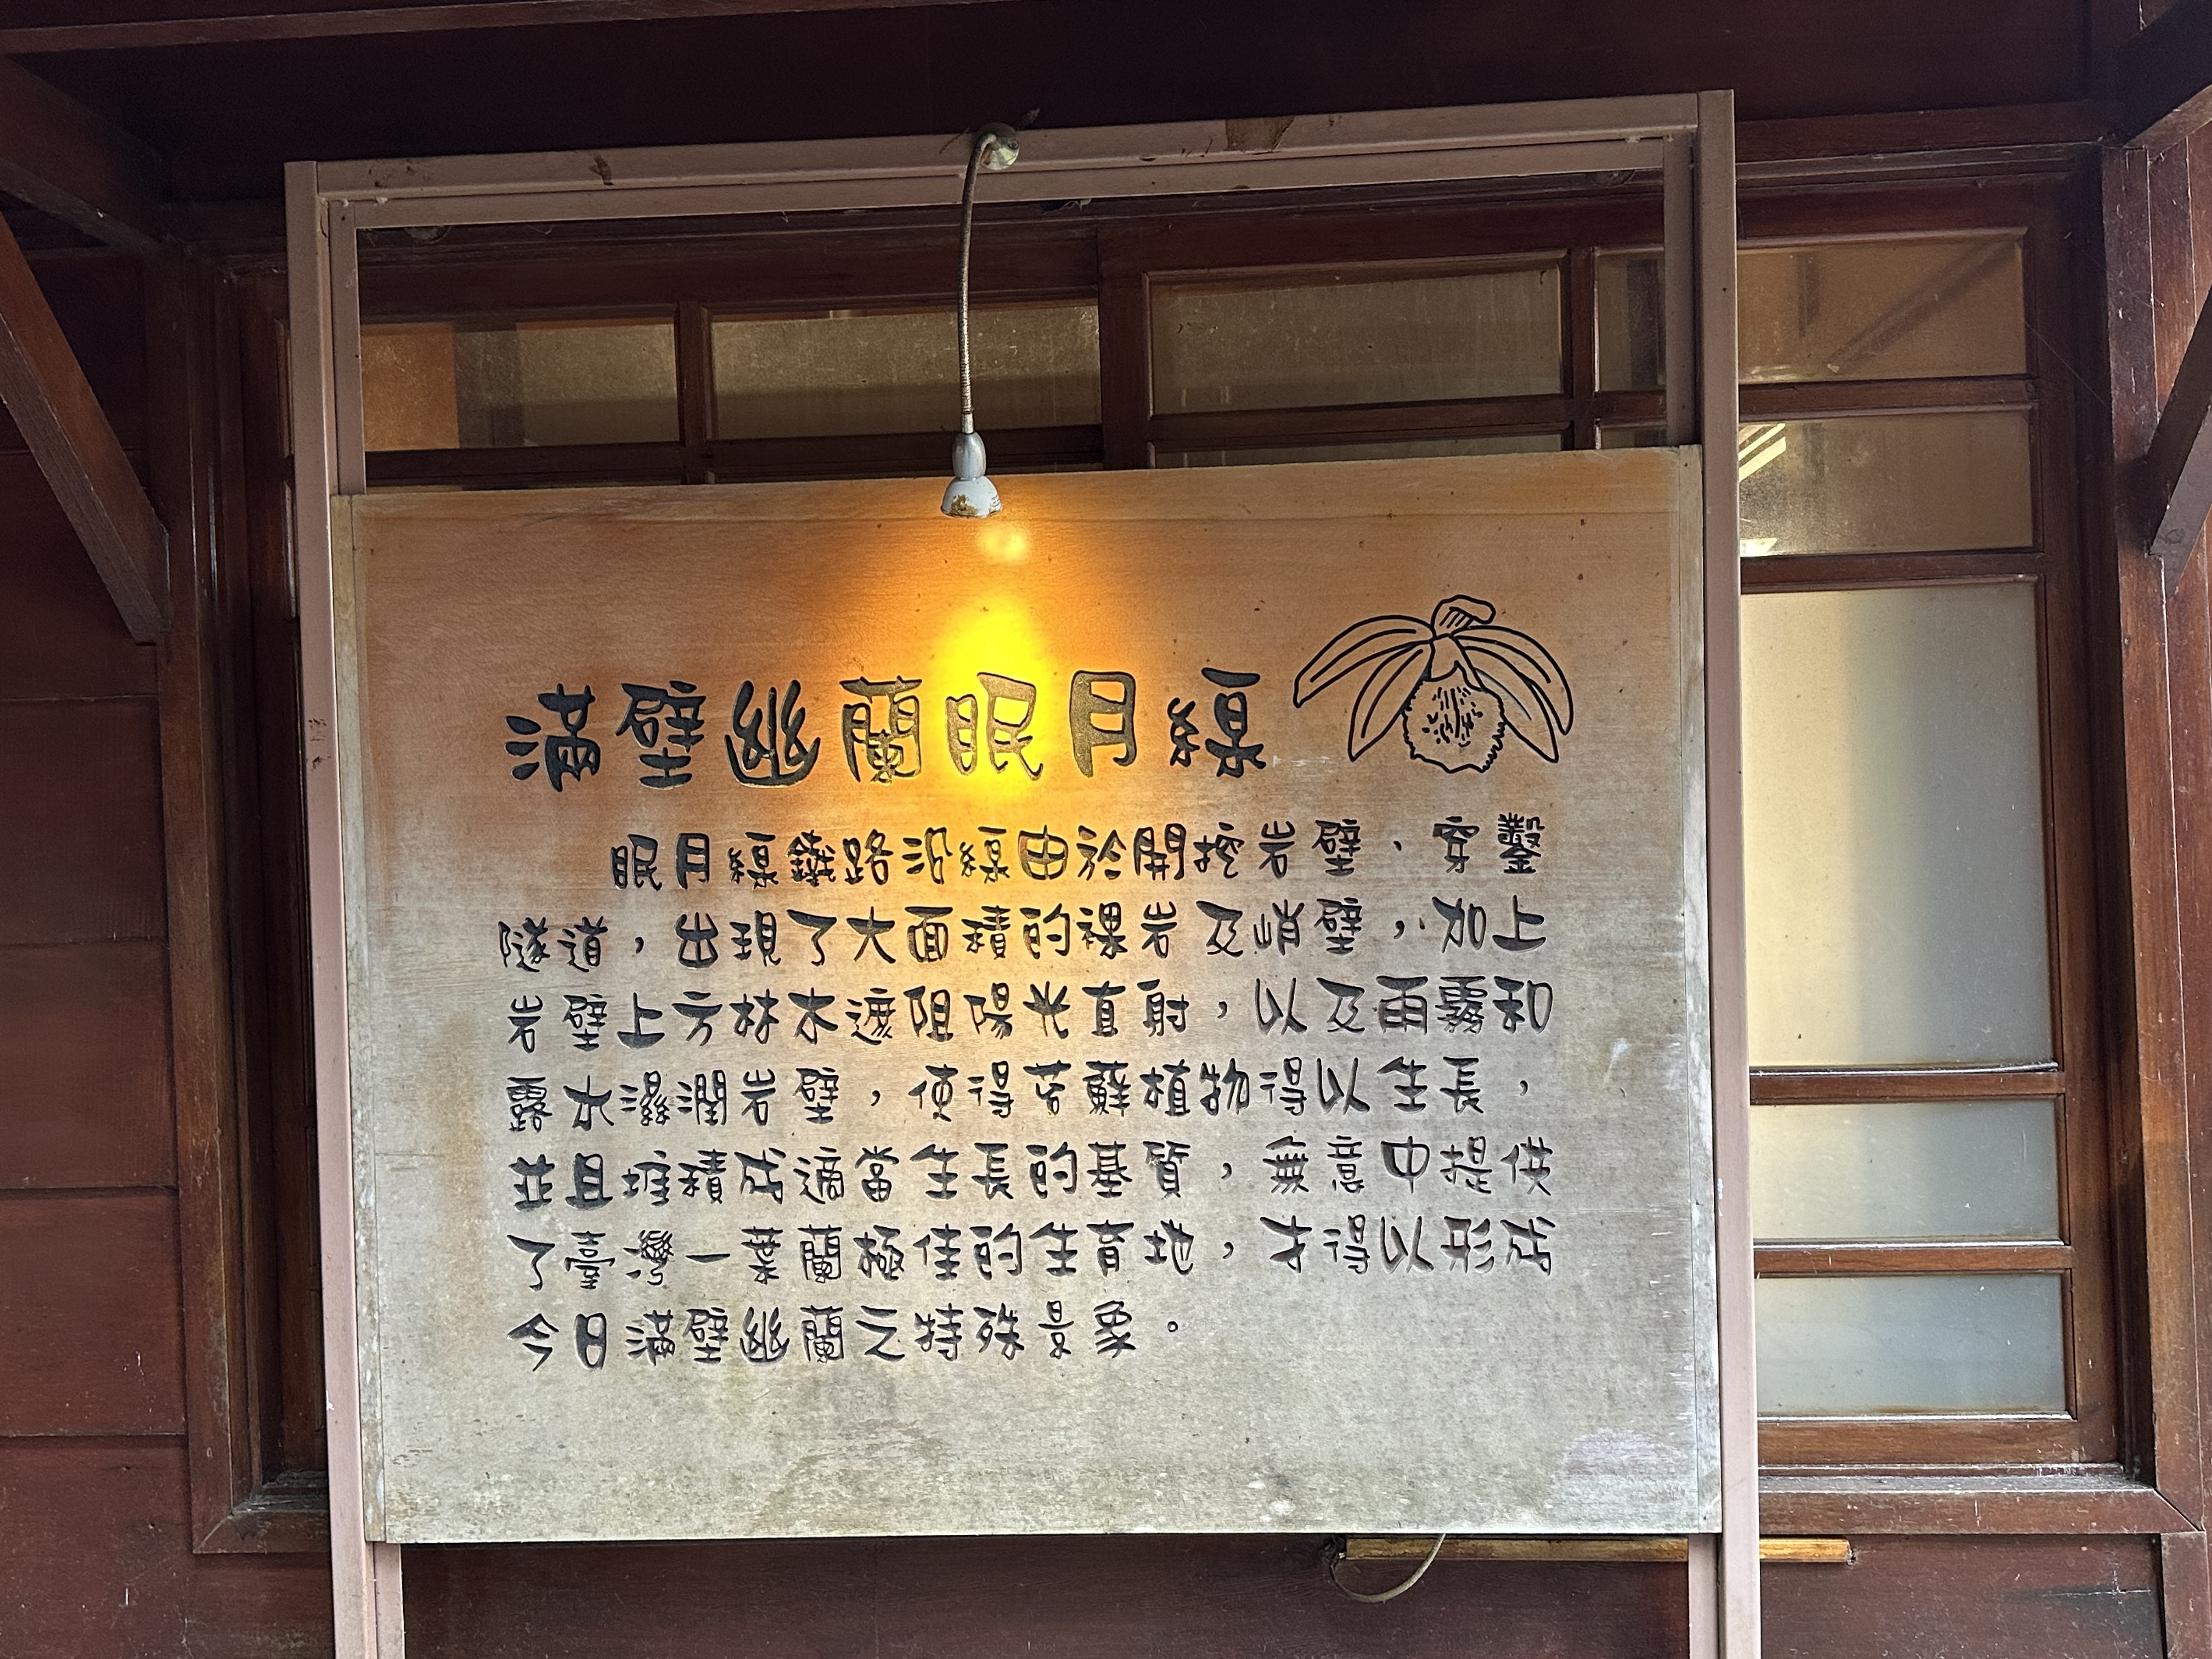 滿壁幽蘭眠月線
眠月線鐵路沿線由於開挖岩壁、穿鑿
隧道，出現了大面積的裸岩及峭壁，加上
岩壁上方林木遮阻陽光直射，以及雨霧和
露水濕潤岩壁，使得苔蘚植物得以生長，
並且堆積成適當生長的基質，無意中提供
了臺灣一葉蘭極佳的生育地，才得以形成
今日滿壁幽蘭之特殊景象。